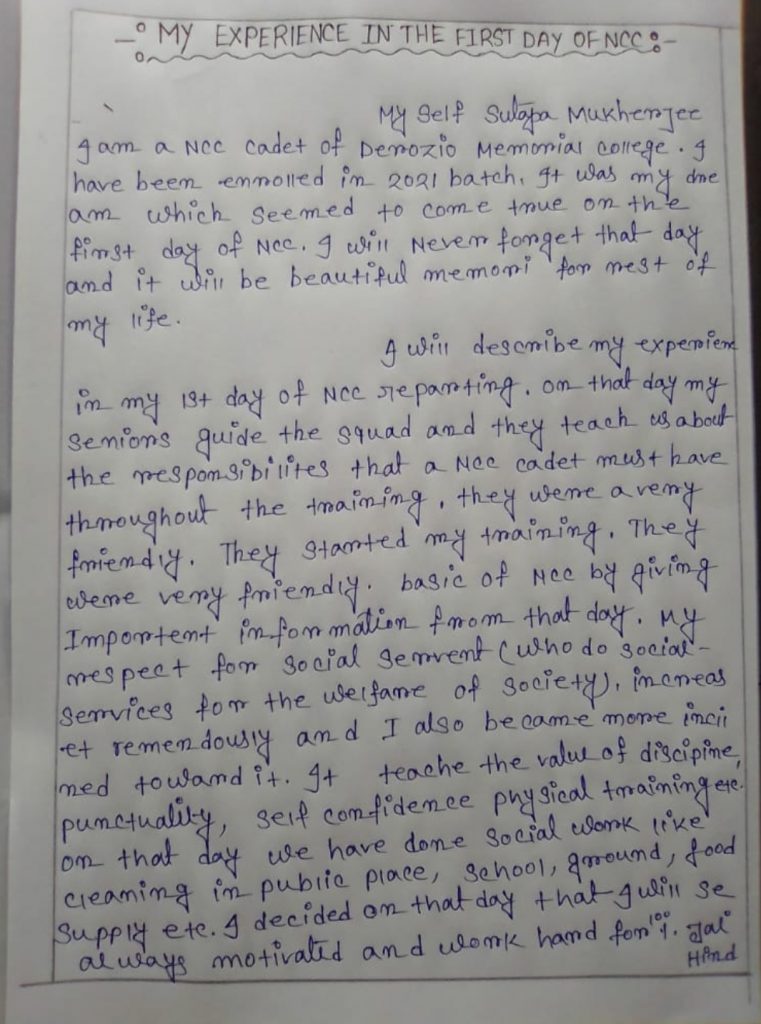 MY EXPERIENCE IN THE FIRST DAY OF NCC :-
My Self Sutapa Mukherjee
I am a NCC cadet of Derozio Memorial college. I
have been enrolled in 2021 batch. It was my dre
am which seemed to come true on the
first day of NCC. I will Never forget that day
and it will be beautiful memori for rest of
my life.
I will describe my experien
in my 1st day of NCC reparting. on that day my
seniors guide the squad and they teach us about
the responsibilites that a NCC cadet must have
throughout the training, they were a very
friendly. They started my training. They
were very friendly. basic of NCC by giving
Importent information from that day. My
respect for social servent (who do social-
services for the welfare of society), increas
et remendously and I also became more incli
ned toward it. It teache the value of discipine,
punctuality, self confidence physical training etc.
on that day we have done social work like
cleaning in public place, school, ground, food
supply etc. I decided on that day that I will se
always motivated and work hard for 100%. Jai
Hind